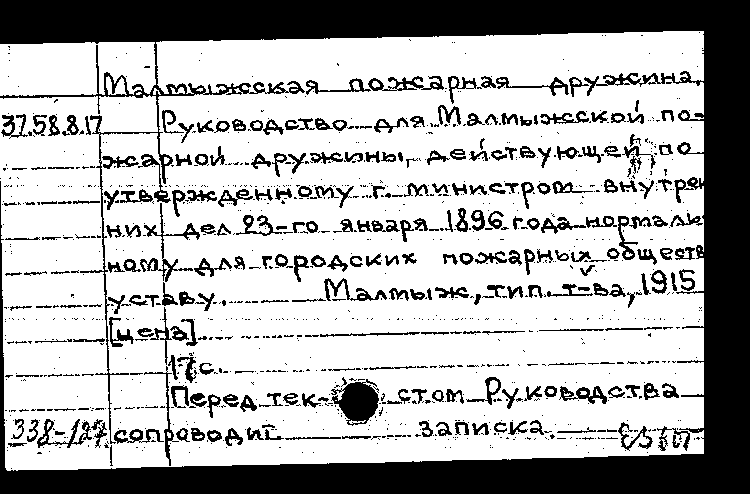 Малмыжская пожарная дружина.
37.58.8.17 Руководство для Малмыжской по-
жарной дружины, действующей по
утвержденному г. министром внутрен
них дел 23-го января 1896 года нормаль
ному для городских пожарных обществ
уставу. Малмыж, тип. т-ва, 1915
[цена]
17 с.
Перед тек- стом Руководства
338-127 сопроводит. записка.